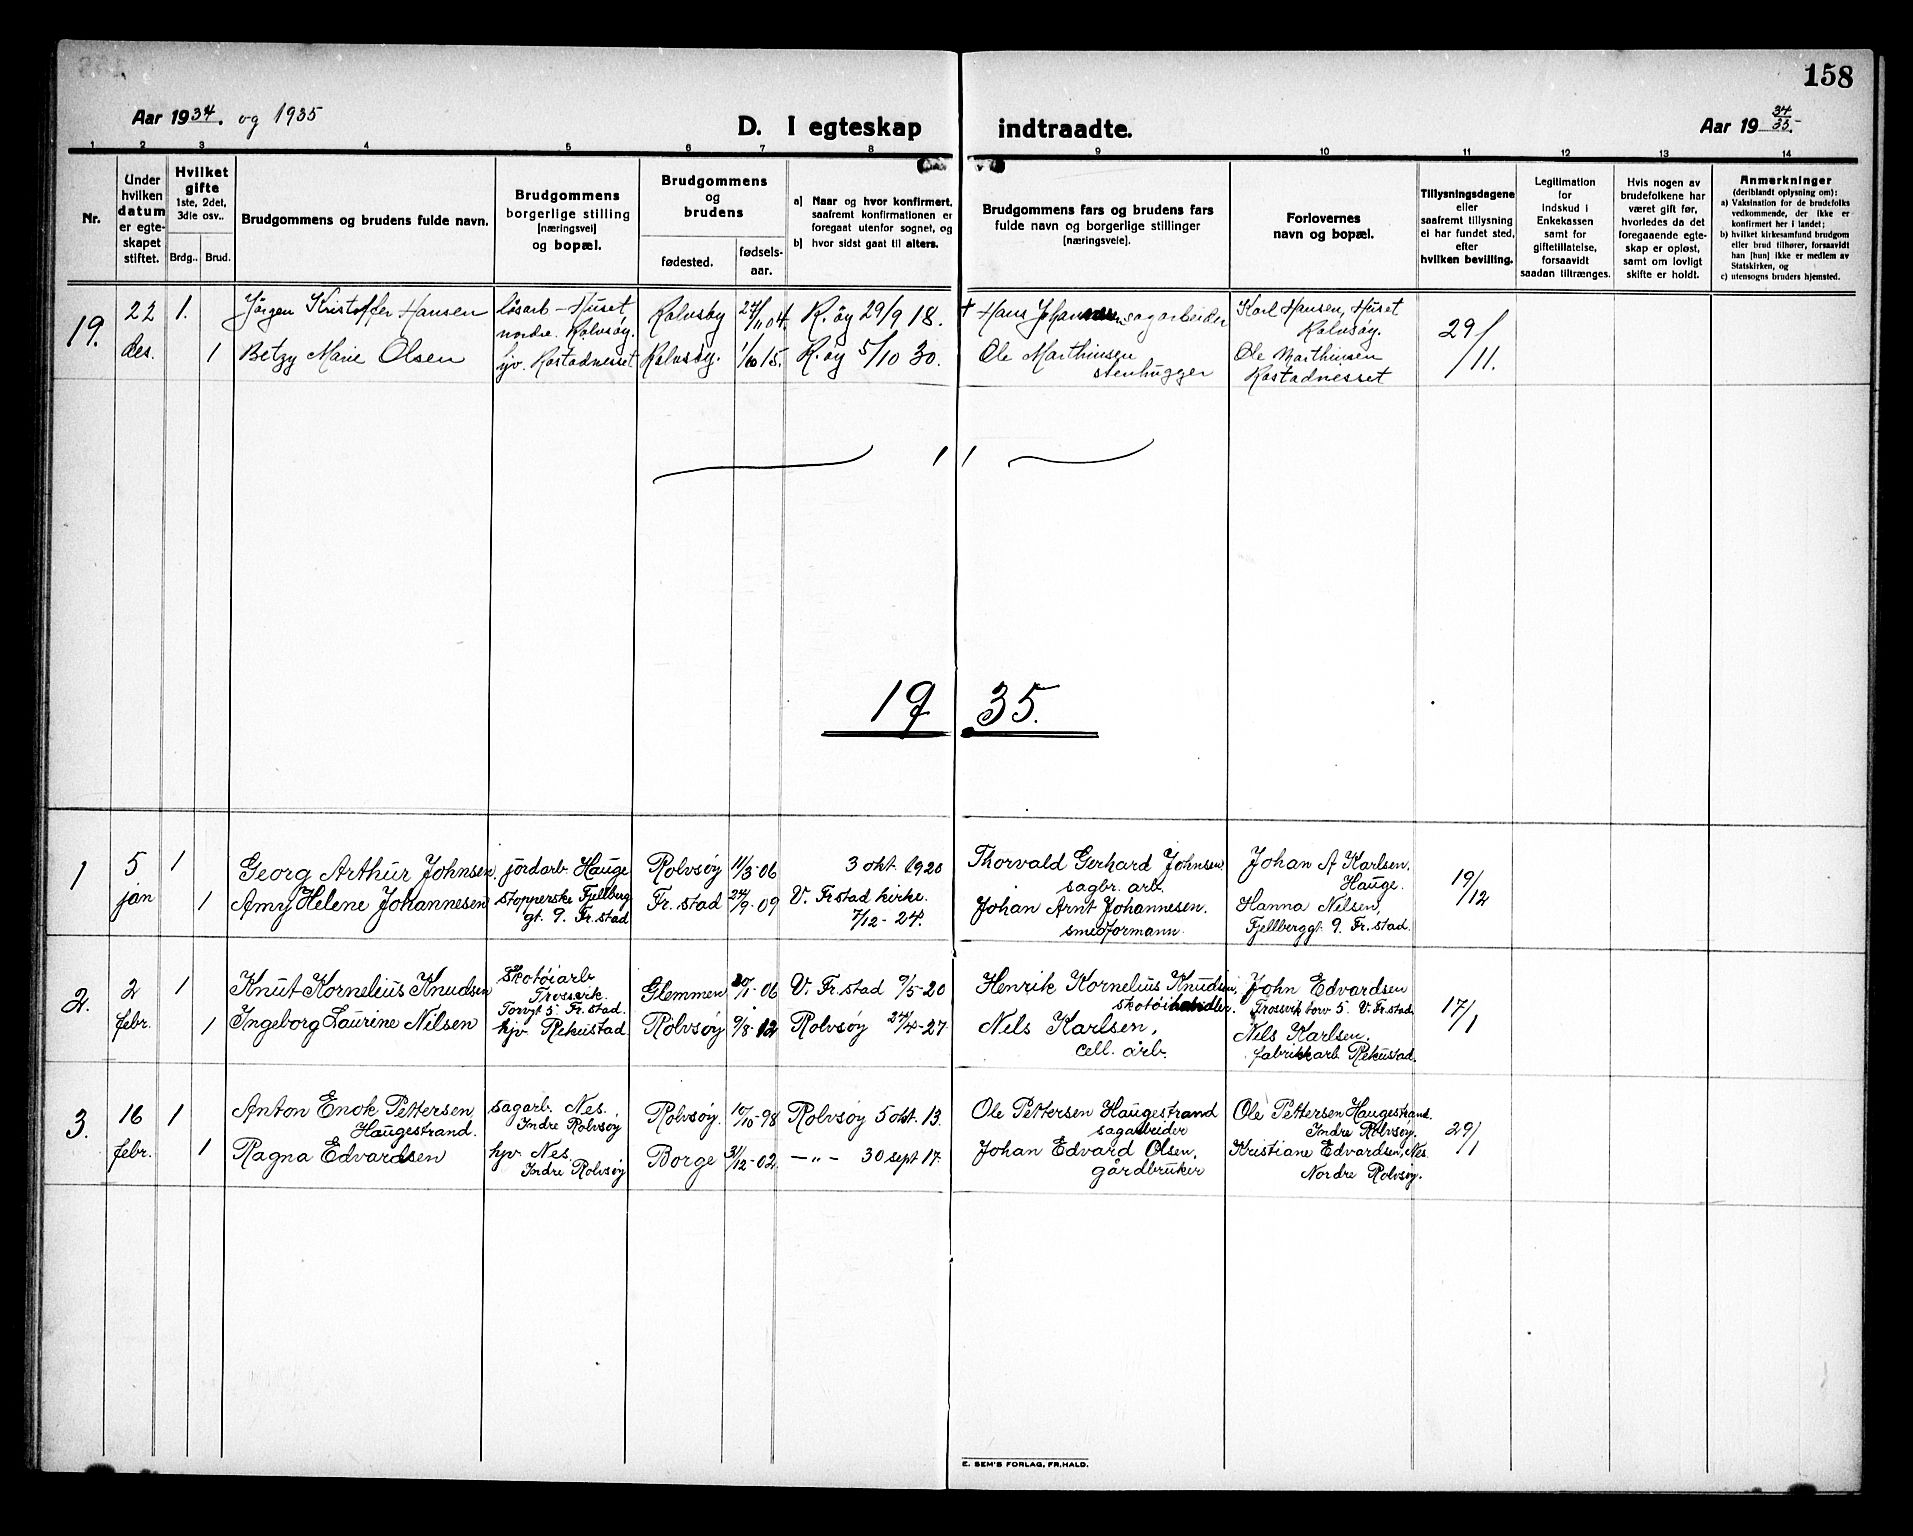 158
Aar 1934. og 1935
D. I egteskap indtraadte.
Aar 19 34/35.
1 2 3 4 5 6 7 8 9 10 11 12 13 14
Nr.
Under hvilken datum er egteskapet stiftet.
Hvilket gifte 1ste, 2det, 3die osv..
Brdg.. Brud.
Brudgommens og brudens fulde navn.
Brudgommens borgerlige stilling [næringsvei] og bopæl.
Brudgommens og brudens
fødested. fødselsaar.
a] Naar og hvor konfirmert, saafremt konfirmationen er foregaat utenfor sognet, og
b] hvor sidst gaat til alters.
Brudgommens fars og brudens fars fulde navn og borgerlige stillinger [næringsveie].
Forlovernes navn og bopæl.
Tillysningsdagene eller saafremt tillysning ei har fundet sted, efter hvilken bevilling.
Legitimation for indskud i Enkekassen samt for giftetillatelse, forsaavidt saadan tiltrænges.
Hvis nogen av brudefolkene har været gift før, hvorledes da det foregaaende egteskap er opløst, samt om lovligt skifte er holdt.
Anmerkninger (deriblandt oplysning om):
a) Vaksination for de brudefolks vedkommende, der ikke er konfirmert her i landet;
b) hvilket kirkesamfund brudgom eller brud tilhører, forsaavidt han [hun] ikke er medlem av Statskirken, og
c) utensogns bruders hjemsted.
19. 22 des. 1. Jörgen Kristoffer Hansen løsarb - Huset nordre. Rolvsøy. Rolvsøy 24/11 04. R.øy 29/9 18. + Hans Johansen sagarbeider Karl Hansen, Huset Rolvsøy. 29/11.
1 Betzy Marie Olsen hjv. Rostadnesset Rolvsøy. 1/10 15. R.øy 5/10 30. Ole Marthinsen stenhugger Ole Marthinsen Rostadnesset
1 1
1935.
1 5 jan 1 Georg Arthur Johnsen. jordarb Hauge Rolvsøy 11/3-06 3 okt 1920 Thorvald Gerhard Johnsen sagbr. arb. Johan A Karlsen. Hauge. 19/12
1 Amy Helene Johannesen stopperske Fjellberg gt. 9. Fr.stad Fr.stad 24/9-09 V. Fr.stad kirke. 7/12-24. Johan Arnt Johannesen. smedformann. Hanna Nilsen, Fjellberggt. 9. Fr.stad.
2. 2 febr. 1 Knut Kornelius Knudsen Skotøiarb Trossvik. Torvgt 5. Fr.stad. Glemmen 20/1-06 V. Fr.stad 9/5-20 Henrik Kornelius Knudsen, skotøihandler. John Edvardsen Trossvik torv 5. V. Fr.stad. 17/1
1 Ingeborg Laurine Nilsen hjv Rekustad Rolvsøy 9/8-12 Rolvsøy 24/4-27 Nels Karlsen, cell. arb. Nils Karlsen. fabrikkarb Rekustad.
3. 16 febr. 1 Anton Enok Pettersen Haugestrand. sagarb. Nes. Indre Rolvsøy Rolvsøy. 10/10-98 Rolvsøy 5 okt. 13. Ole Pettersen Haugestrand sagarbeider Ole Pettersen Haugestrand. Indre Rolvsøy. 29/1
1 Ragna Edvardsen hjv Nes. Indre Rolvsøy Borge 31/12-02. -"- 30 sept 17. Johan Edvard Olsen, gårdbruker Kristiane Edvardsen, Nes. Nordre Rolvsøy.
E. SEM'S FORLAG, FR.HALD.